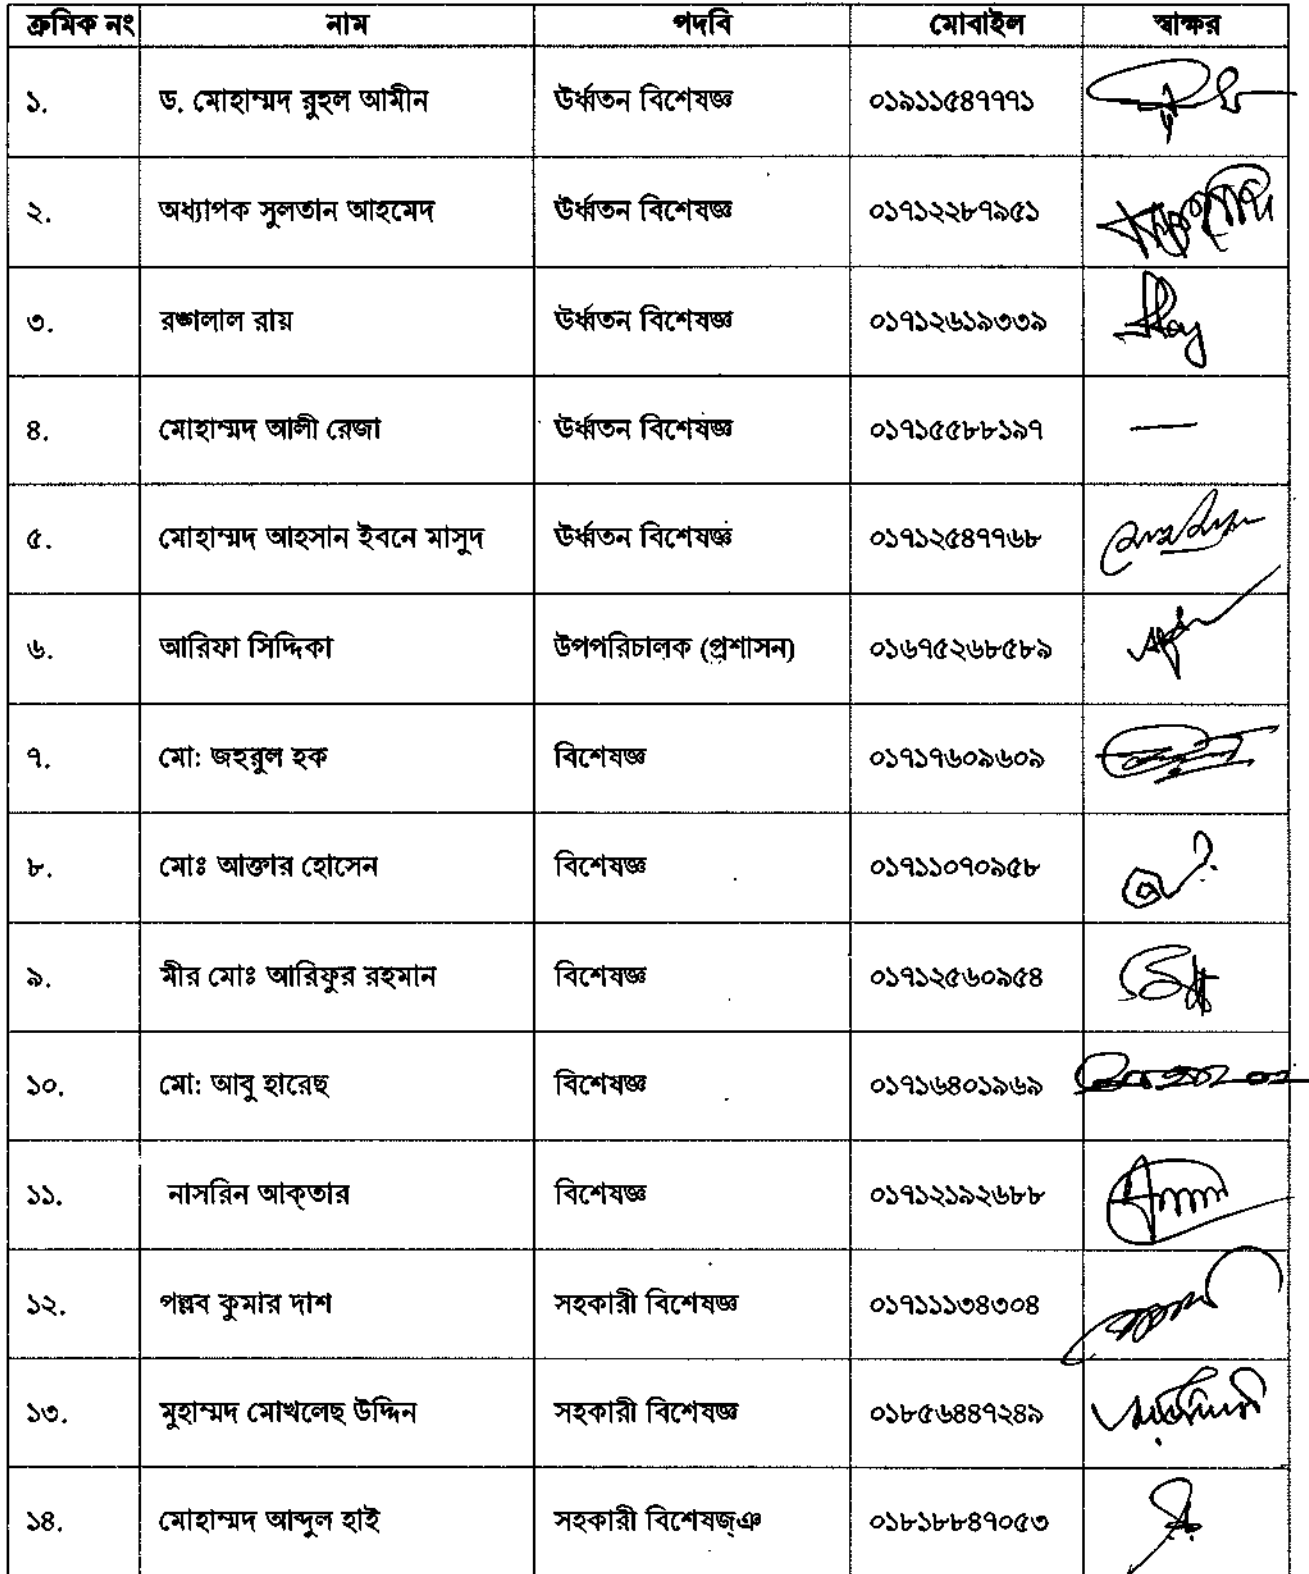 ক্রমিক নং নাম পদবি মোবাইল স্বাক্ষর
১. ড. মোহাম্মদ রুহুল আমীন ঊর্ধ্বতন বিশেষজ্ঞ ০১৯১১৫৪৭৭৭১
২. অধ্যাপক সুলতান আহমেদ ঊর্ধ্বতন বিশেষজ্ঞ ০১৭১২২৮৭৯৫১
৩. রঙ্গলাল রায় ঊর্ধ্বতন বিশেষজ্ঞ ০১৭১২৬১৯৩৩৯ Roy
৪. মোহাম্মদ আলী রেজা ঊর্ধ্বতন বিশেষজ্ঞ ০১৭১৫৫৮৮১৯৭ —
৫. মোহাম্মদ আহসান ইবনে মাসুদ ঊর্ধ্বতন বিশেষজ্ঞ ০১৭১২৫৪৭৭৬৮
৬. আরিফা সিদ্দিকা উপপরিচালক (প্রশাসন) ০১৬৭৫২৬৮৫৮৯
৭. মো: জহরুল হক বিশেষজ্ঞ ০১৭১৭৬০৯৬০৯
৮. মোঃ আক্তার হোসেন বিশেষজ্ঞ ০১৭১১০৭০৯৫৮
৯. মীর মোঃ আরিফুর রহমান বিশেষজ্ঞ ০১৭১২৫৬০৯৫৪
১০. মো: আবু হারেছ বিশেষজ্ঞ ০১৭১৬৪০১৯৬৯
১১. নাসরিন আক্‌তার বিশেষজ্ঞ ০১৭১২১৯২৬৮৮
১২. পল্লব কুমার দাশ সহকারী বিশেষজ্ঞ ০১৭১১১৩৪৩০৪
১৩. মুহাম্মদ মোখলেছ উদ্দিন সহকারী বিশেষজ্ঞ ০১৮৫৬৪৪৭২৪৯
১৪. মোহাম্মদ আব্দুল হাই সহকারী বিশেষজ্‌ঞ ০১৮১৮৮৪৭০৫৩